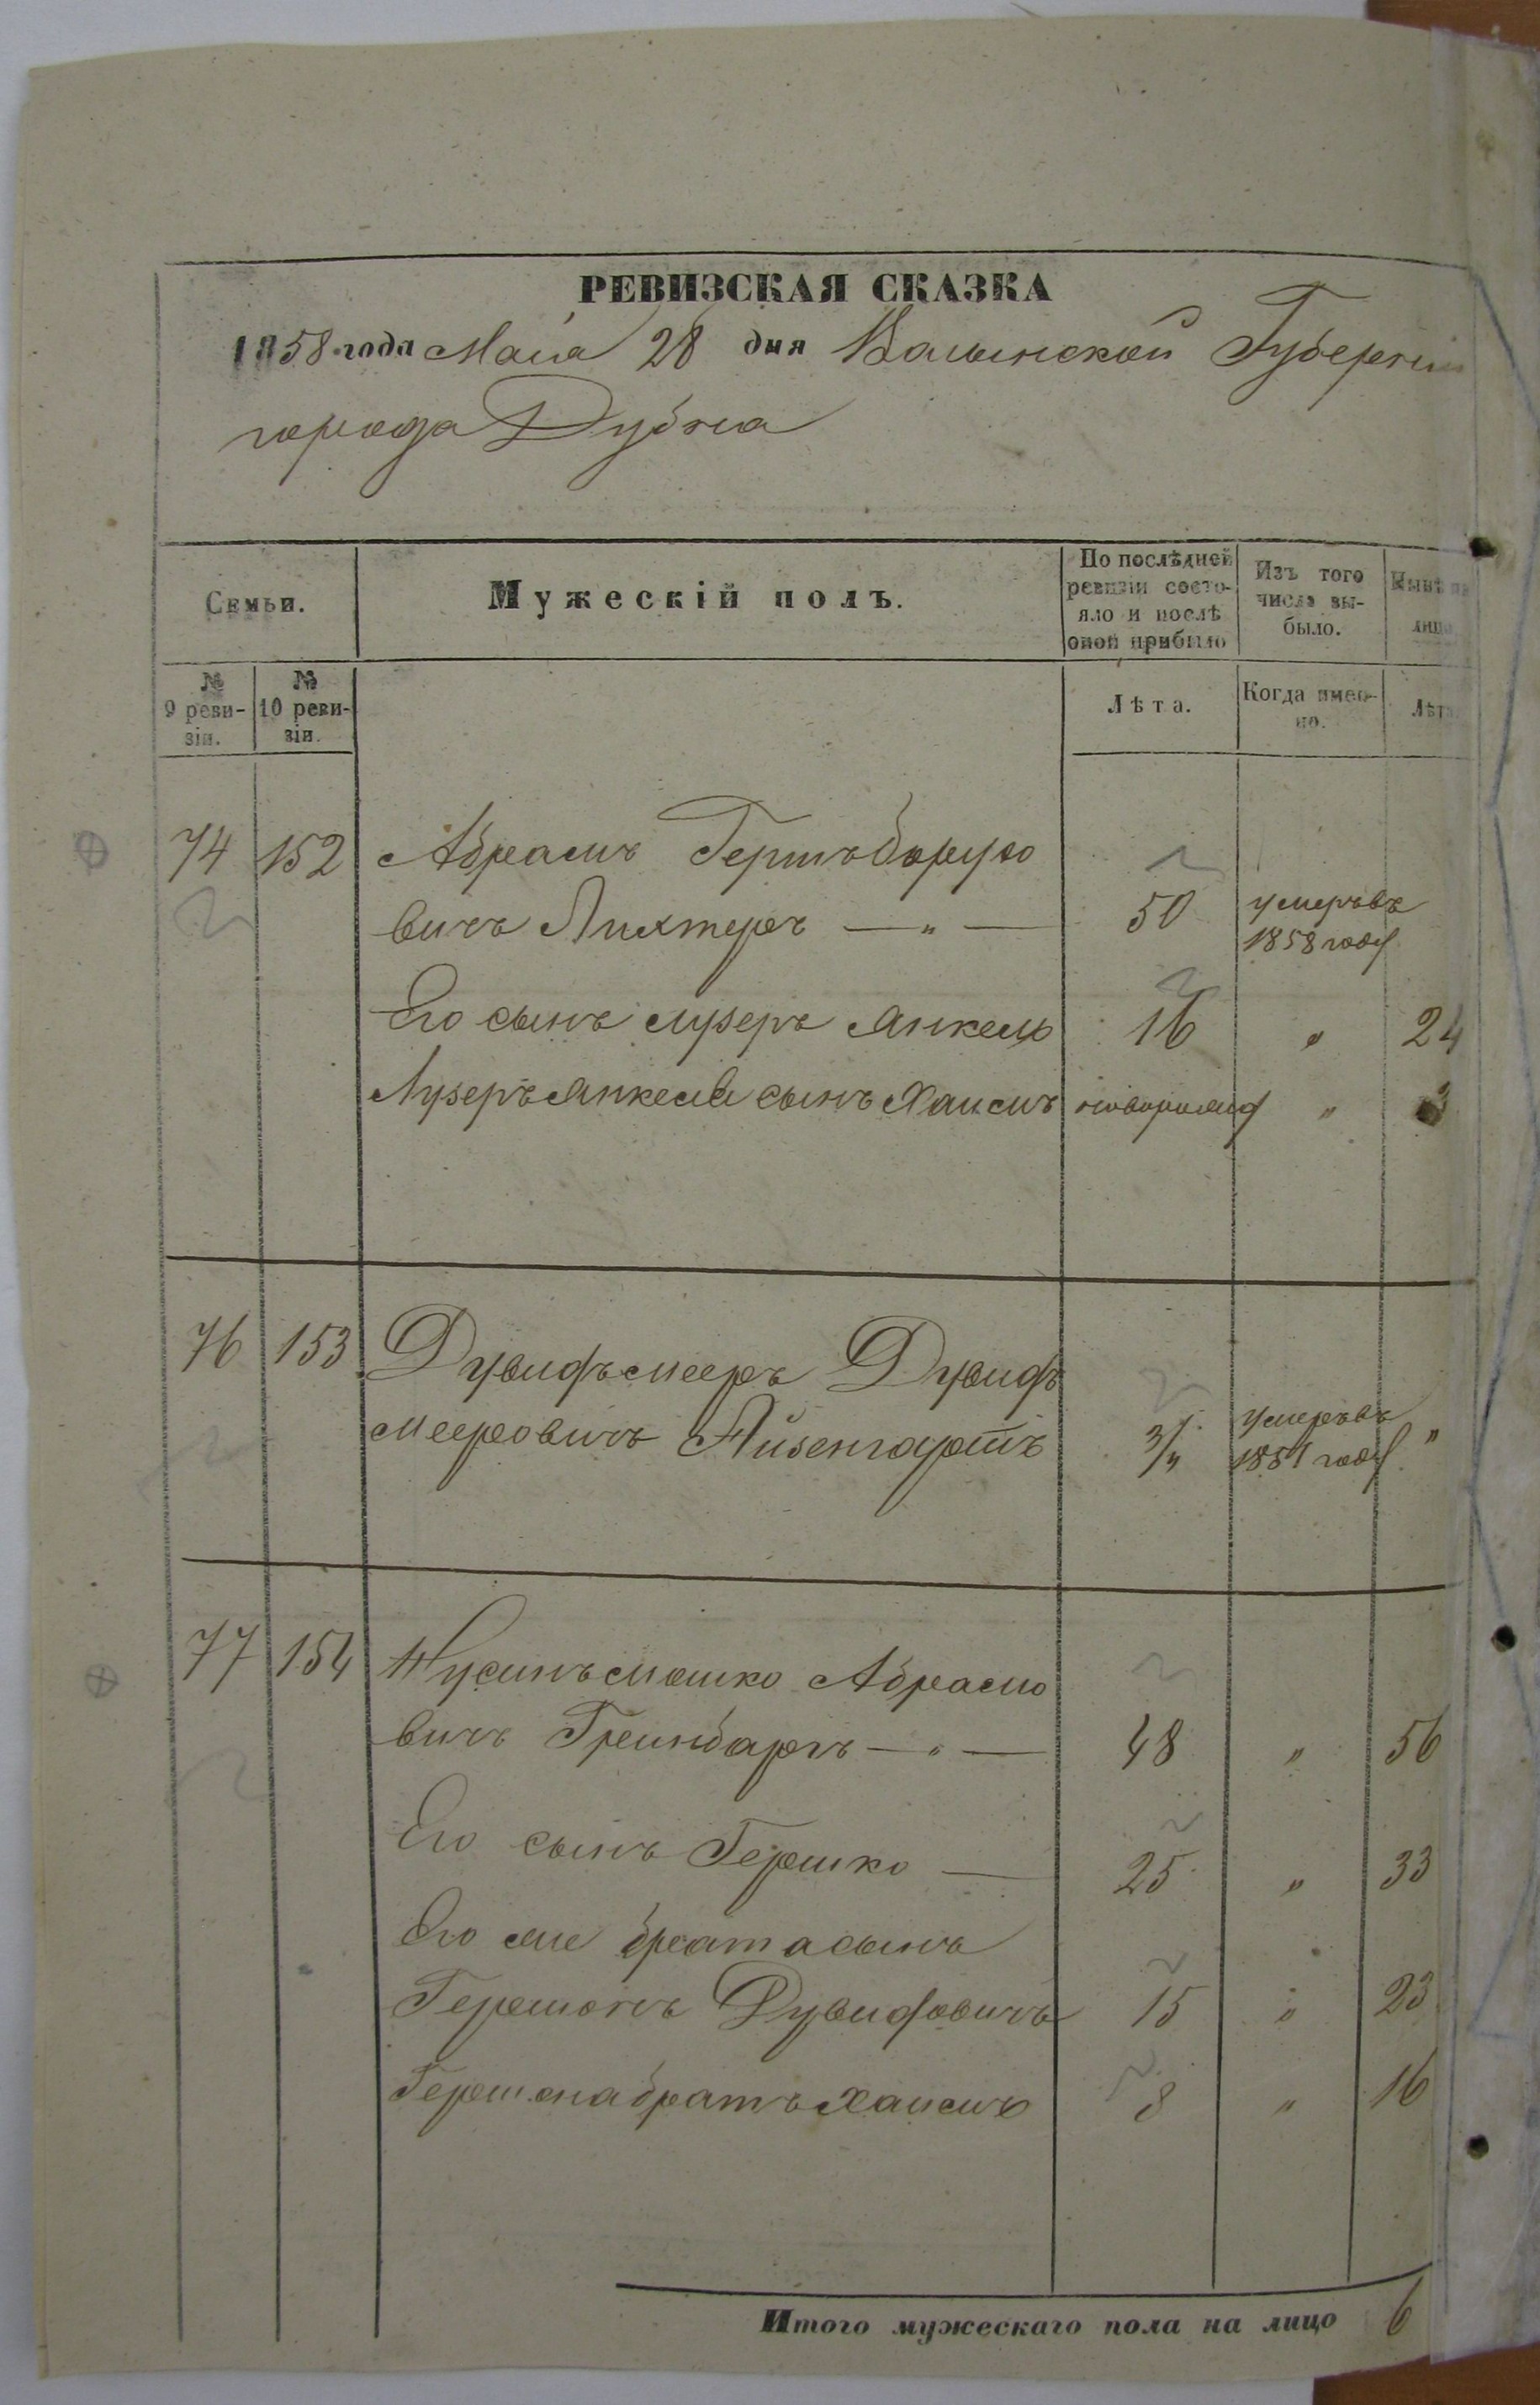 РЕВИЗСКАЯ СКАЗКА
1858 года Мая 28 дня Волынской Губернии
города Дубна
Семьи.
Мужескій полъ.
По послѣдней ревизіи состояло и послѣ оной прибыло
Изъ того числа выбыло.
Нынѣ на лицо
№ 9 ревизіи.
№ 10 ревизіи.
Лѣта.
Когда именно.
Лѣта
74 152 Абрамъ Гершъ Борухо
вичъ Лихтеръ — „ — 50 умеръ въ 1858 году
Его сынъ Лузеръ Янкель 16 „ 24
Лузеръ Янкеля сынъ Хаимъ новорожд „ 3
76 153 Дувидъ Мееръ Дувидъ
Мееровичъ Айзенгартъ умеръ въ 1851 году „
77 154 Нусинъ Мошко Абрамо
вичъ Греинбаргъ — „ — 48 „ 56
Его сынъ Гершко — 25 „ 33
Его же брата сынъ
Гершонъ Дувидовичъ 15 „ 23
Гершона братъ Хаимъ 8 „ 16
Итого мужескаго пола на лицо 6